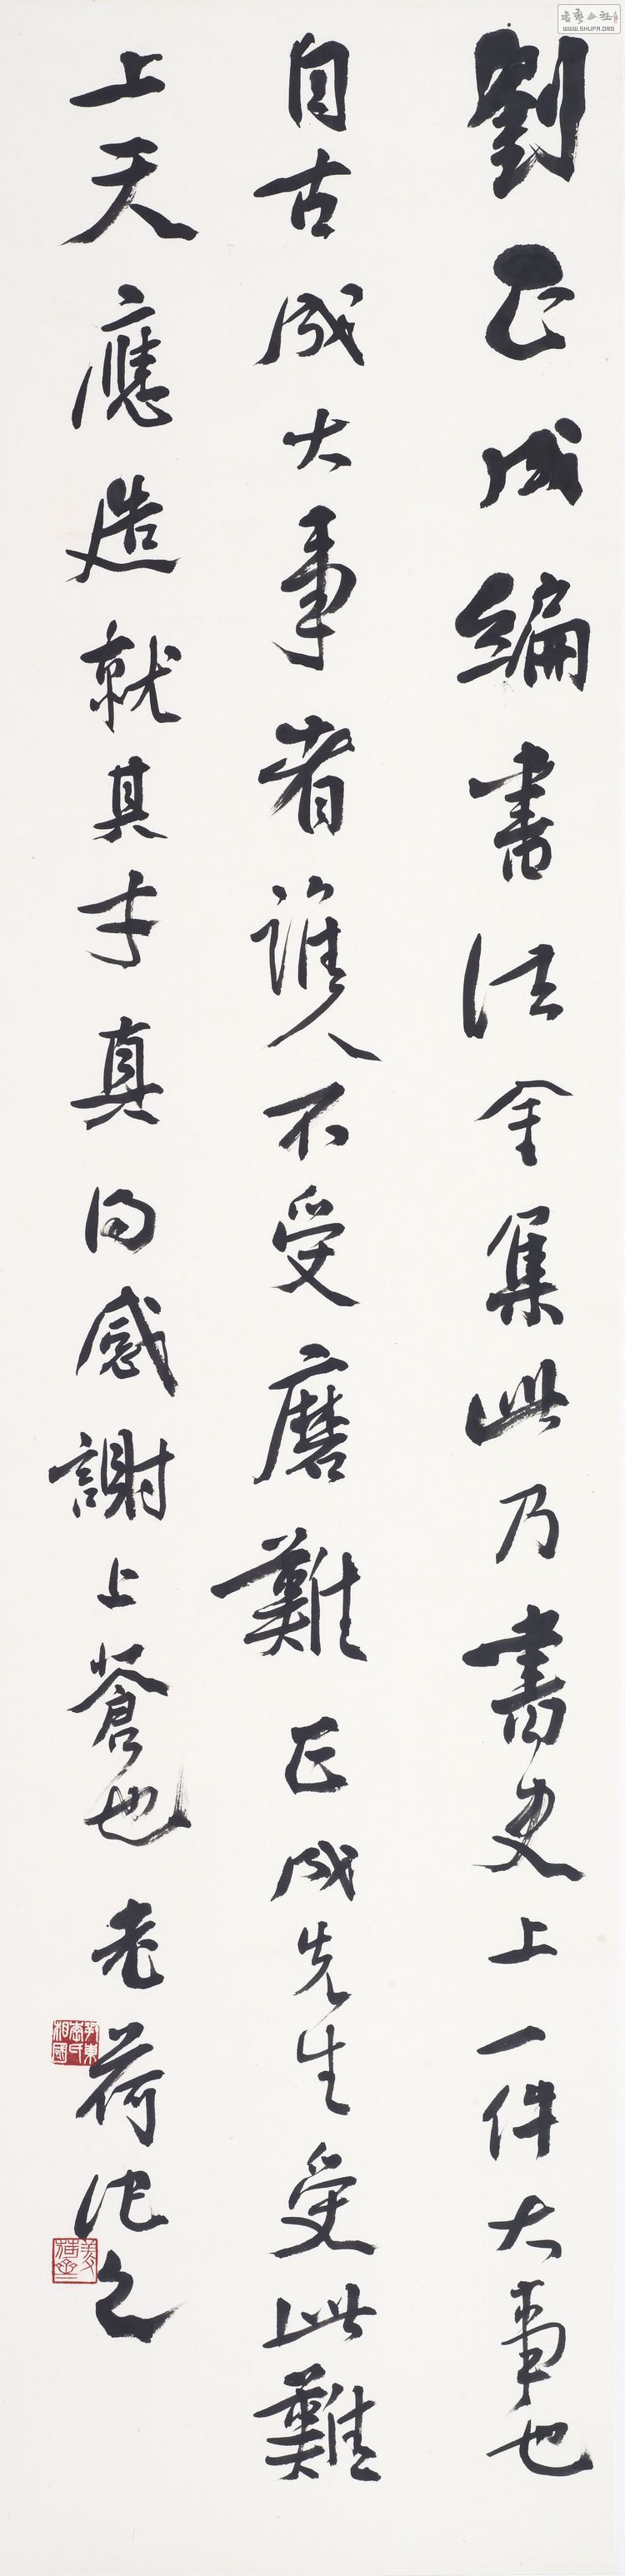 劉正成編書法全集此乃書史上一件大事也
自古成大事者誰人不受磨難正成先生受此難
上天應造就其才真的感謝上蒼也老荷記之
WWW.SHUFA.ORG